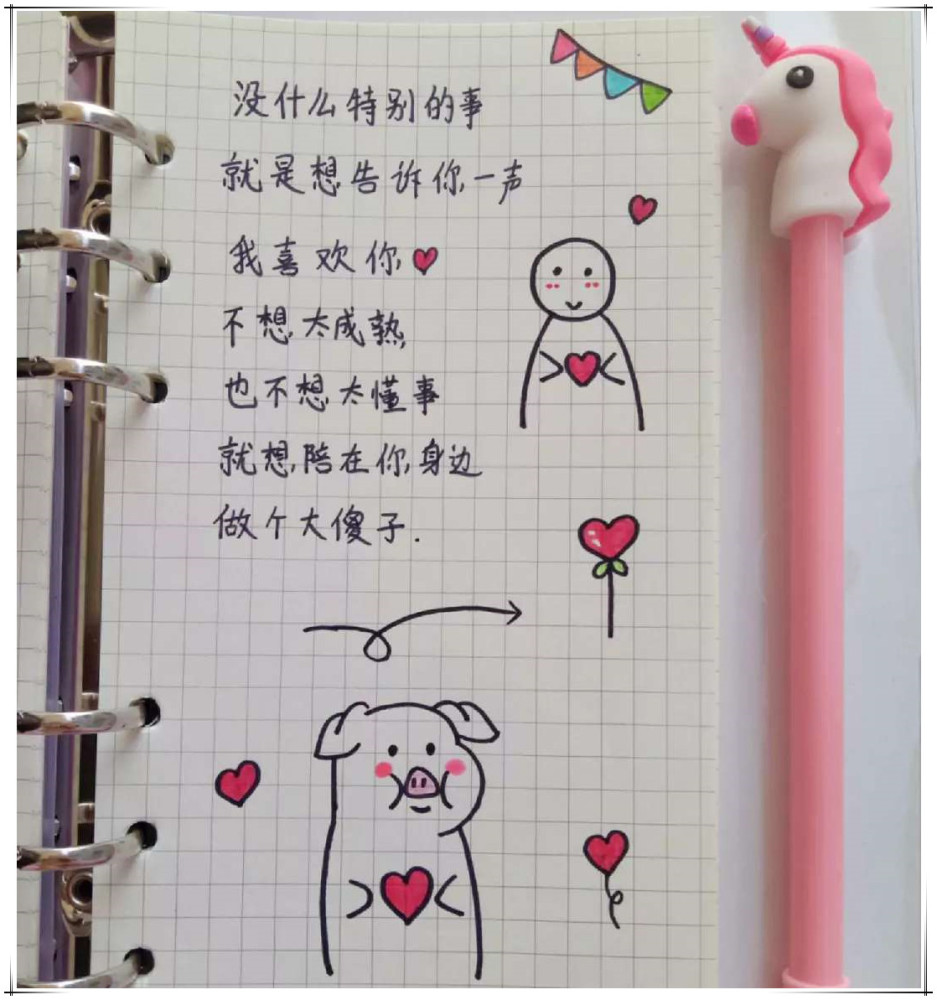 没什么特别的事
就是想告诉你一声
我喜欢你
不想太成熟
也不想太懂事
就想陪在你身边
做个大傻子.